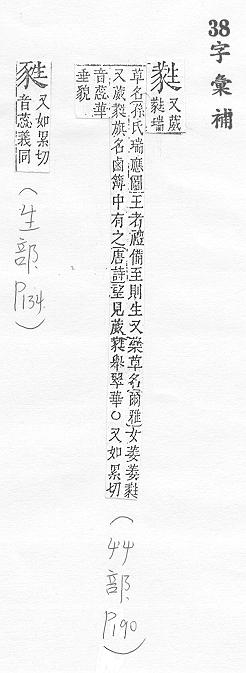 38字彙補
蕤又葳
蕤瑞
草名(孫氏瑞應圖)王者禮備至則生又藥草名(爾雅)女萎萎蕤
又葳蕤旗名鹵簿中有之(唐詩)望見葳蕤舉翠華○又如累切
音蕊華
垂貌
(艸部 P190)
甤又如累切
音蕊義同
(生部 P134)